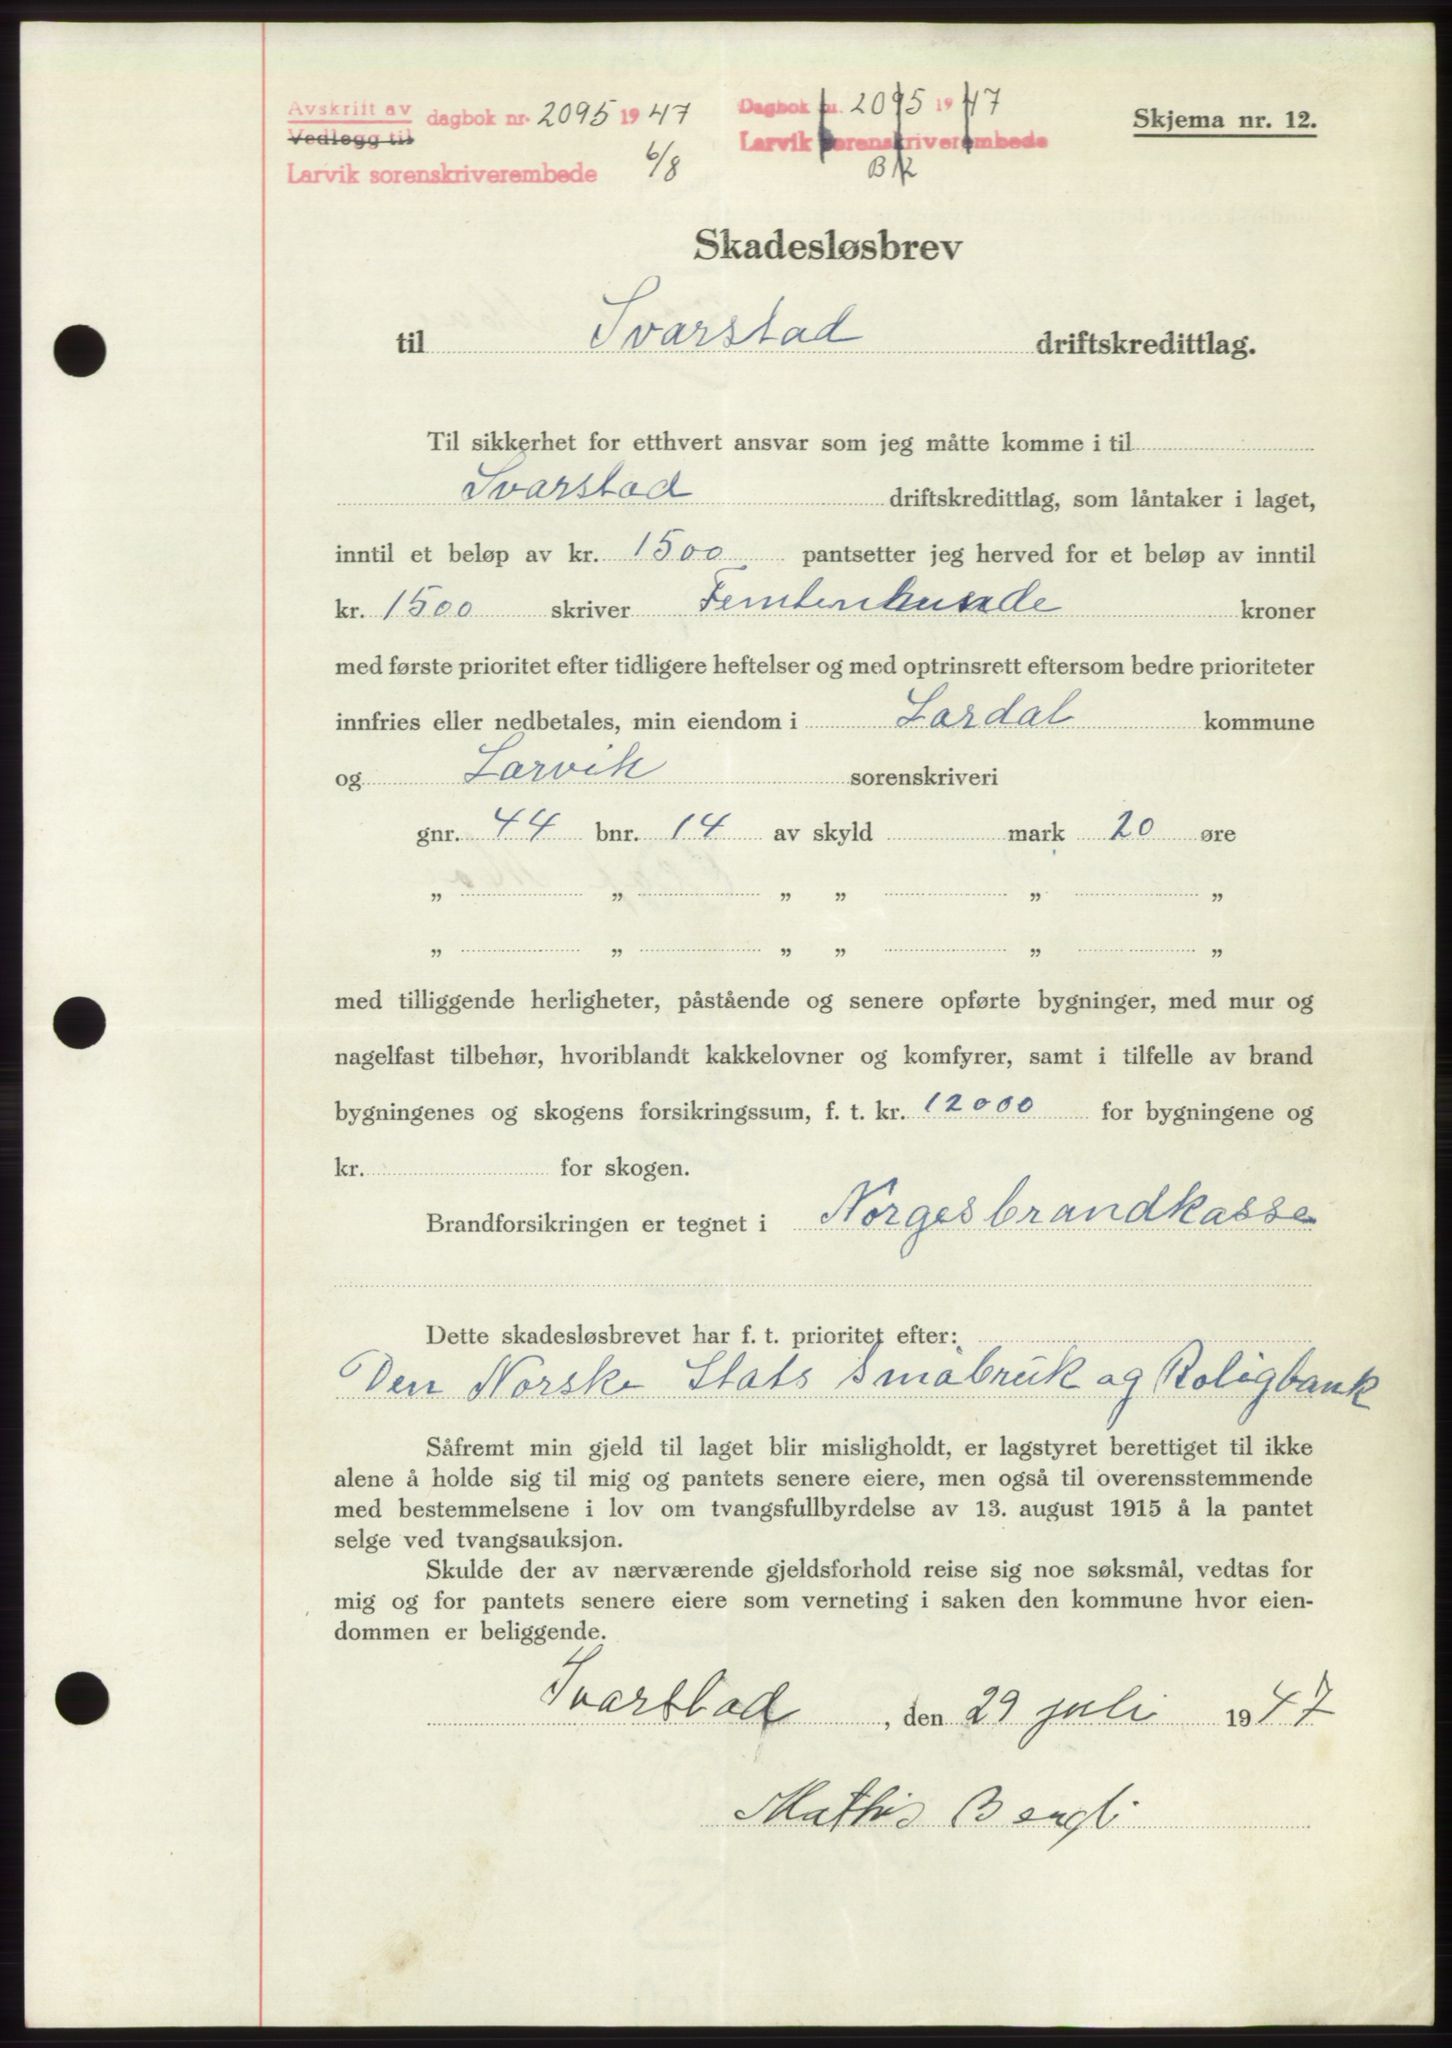 Avskrift av
Vedlegg til
dagbok nr. 2095 1947
Larvik sorenskriverembede 6/8
Dagbok nr. 2095 1947
Larvik sorenskriverembede
B 12
Skjema nr. 12.
Skadesløsbrev
til Svarstad driftskredittlag.
Til sikkerhet for etthvert ansvar som jeg måtte komme i til
Svarstad driftskredittlag, som låntaker i laget,
inntil et beløp av kr. 1500 pantsetter jeg herved for et beløp av inntil
kr. 1500 skriver Femtenhunde kroner
med første prioritet efter tidligere heftelser og med optrinsrett eftersom bedre prioriteter
innfries eller nedbetales, min eiendom i Lardal kommune
og Larvik sorenskriveri
gnr. 44 bnr. 14 av skyld mark 20 øre
„ „ „ „ „ „
„ „ „ „ „ „
med tilliggende herligheter, påstående og senere opførte bygninger, med mur og
nagelfast tilbehør, hvoriblandt kakkelovner og komfyrer, samt i tilfelle av brand
bygningenes og skogens forsikringssum, f. t. kr. 12000 for bygningene og
kr. for skogen.
Brandforsikringen er tegnet i Norges brandkasse
Dette skadesløsbrevet har f. t. prioritet efter:
Den Norske Stats Småbruk og Boligbank
Såfremt min gjeld til laget blir misligholdt, er lagstyret berettiget til ikke
alene å holde sig til mig og pantets senere eiere, men også til overensstemmende
med bestemmelsene i lov om tvangsfullbyrdelse av 13. august 1915 å la pantet
selge ved tvangsauksjon.
Skulde der av nærværende gjeldsforhold reise sig noe søksmål, vedtas for
mig og for pantets senere eiere som verneting i saken den kommune hvor eien-
dommen er beliggende.
Svarstad, den 29 juli 1947
Mathis Bergli